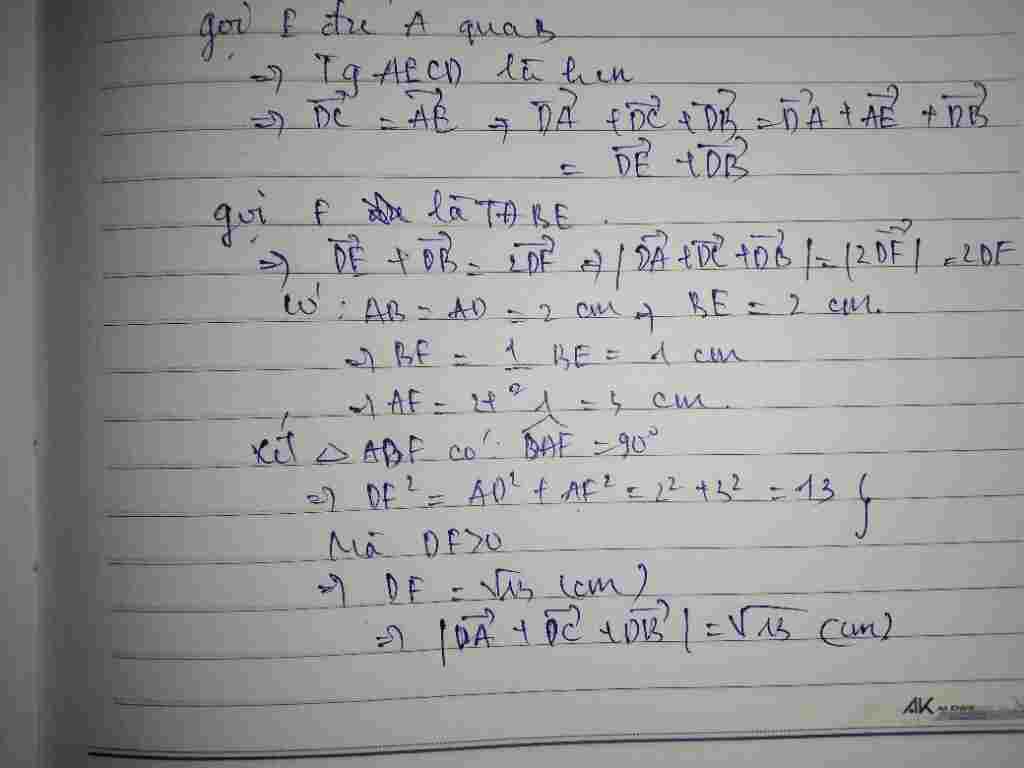 gọi E đx A qua B
⇒ Tg AECD là hbh
⇒ →DC = →AE ⇒ →DA + →DC + →DB = →DA + →AE + →DB
= →DE + →DB
gọi F là TĐ BE.
⇒ →DE + →DB = 2→DF ⇒ |→DA + →DC + →DB| = |2→DF| = 2DF
Có: AB = AD = 2 cm ⇒ BE = 2 cm.
⇒ BF = 1/2 BE = 1 cm
⇒ AF = 2+1 = 3 cm.
Xét △ ABF có: BAF = 90°
⇒ DF² = AD² + AF² = 2² + 3² = 13
Mà DF>0
⇒ DF = √13 (cm)
⇒ |→DA + →DC + →DB| = √13 (cm)
AK